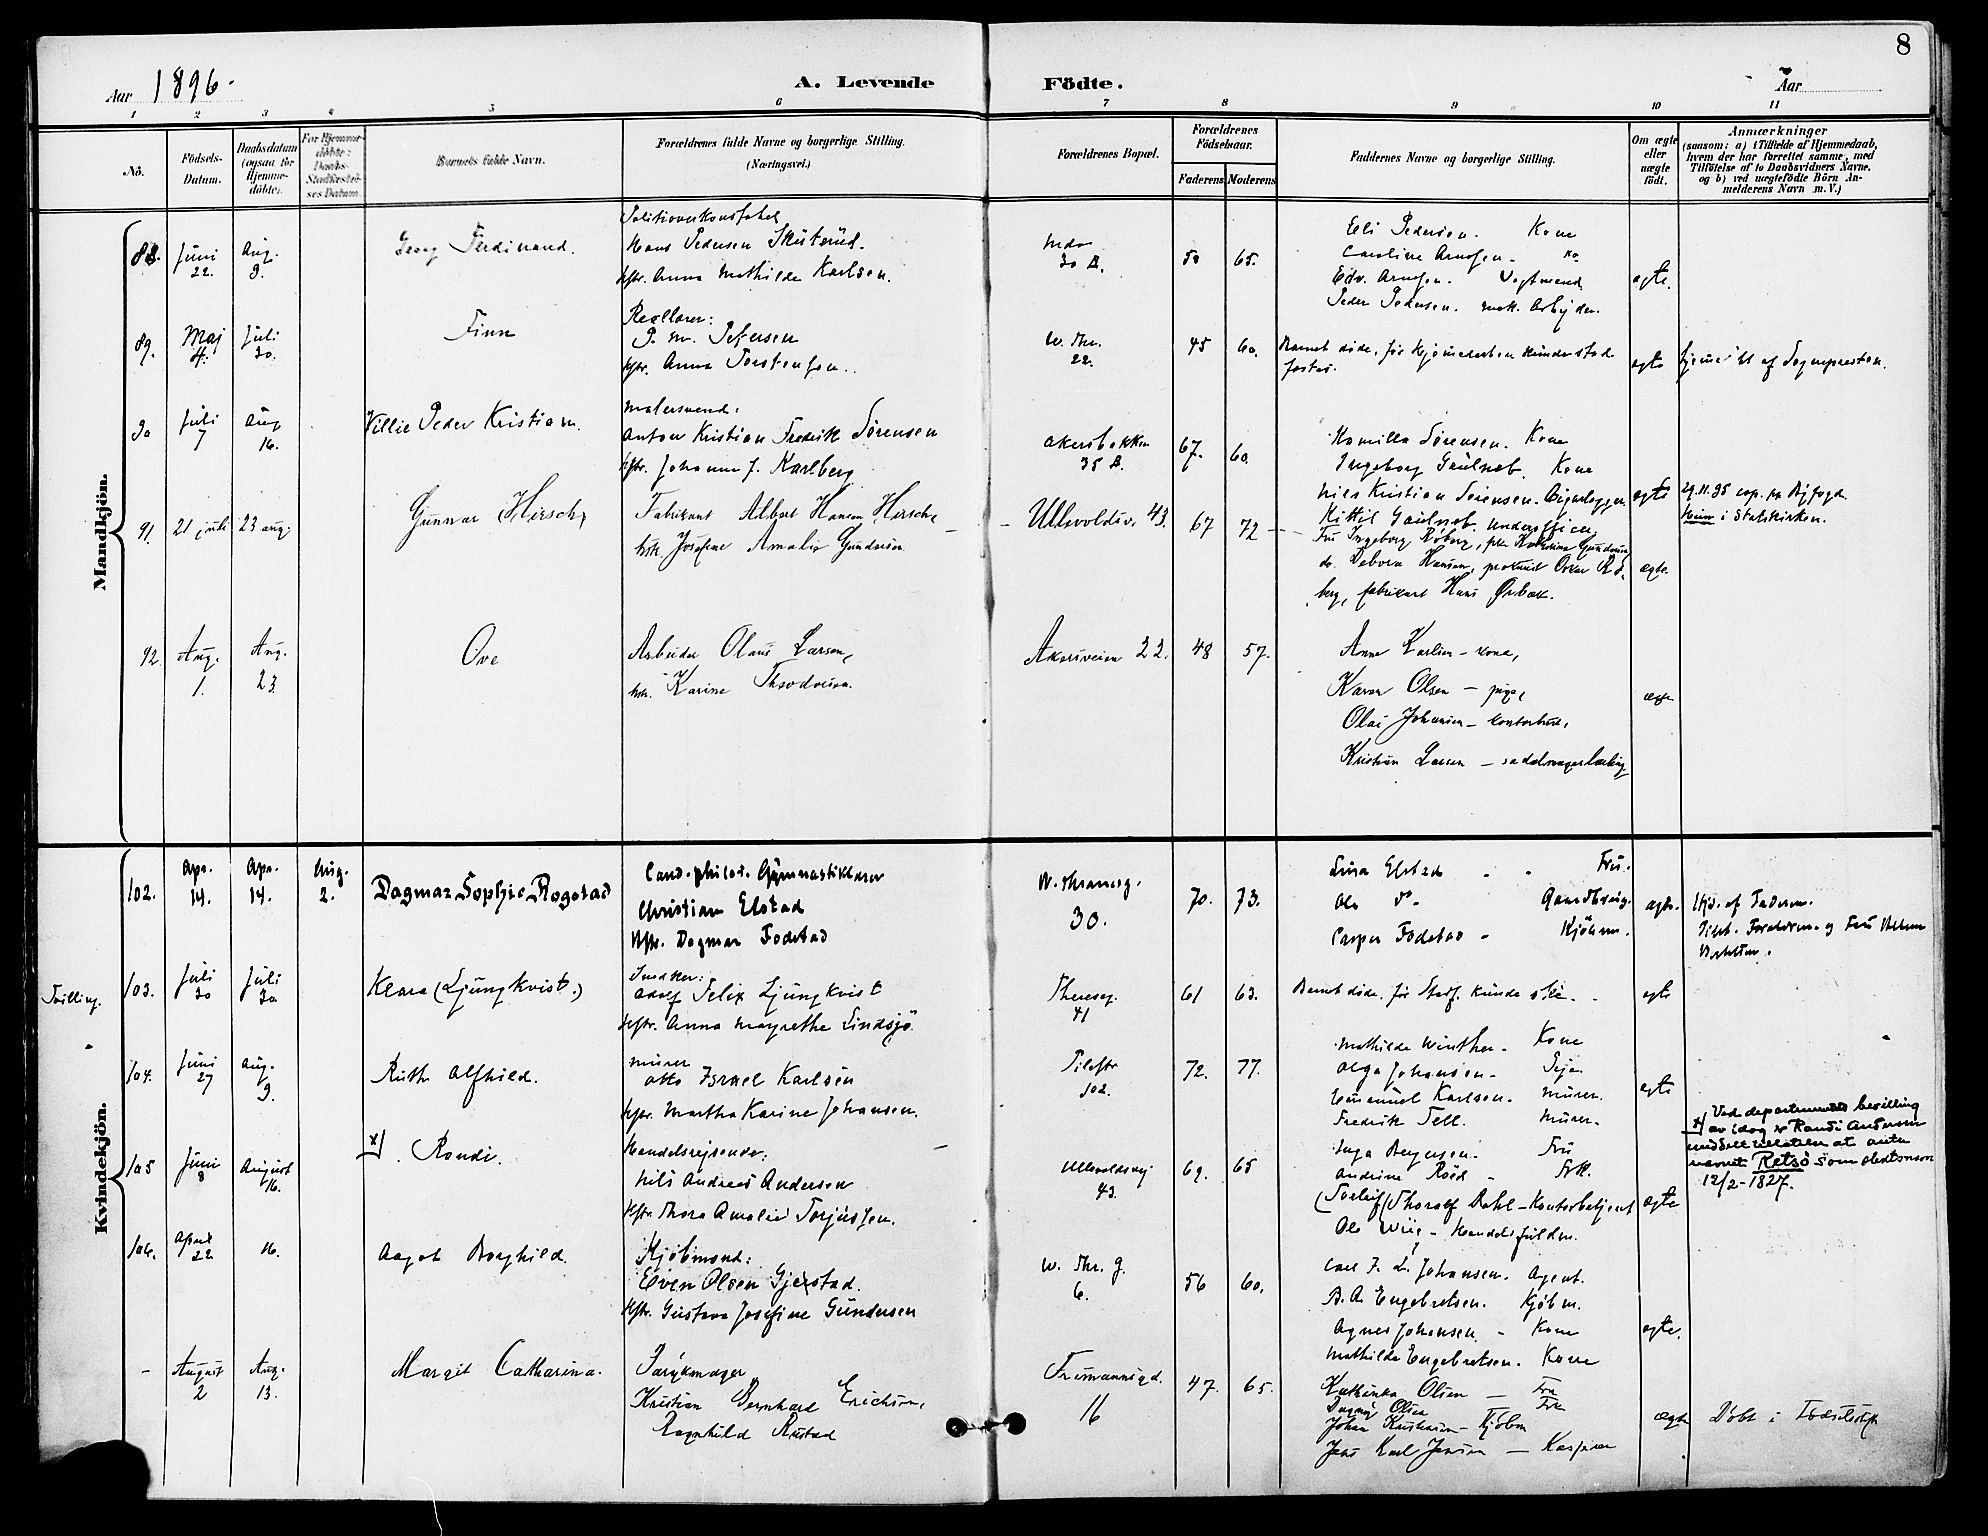 8
Aar 1896.
A. Levende Födte.
Aar
1 2 3 4 5 6 7 8 9 10 11
No.
Födsels-Datum.
Daabsdatum (ogsaa for Hjemme-döbte).
For Hjemme-döbte: Daabs-Stadfæstel-ses Datum.
Barnets fulde Navn.
Forældrenes fulde Navne og borgerlige Stilling.
(Næringsvei.)
Forældrenes Bopæl.
Forældrenes Födselsaar.
Faderens Moderens
Faddernes Navne og borgerlige Stilling.
Om ægte eller uægte födt.
Anmærkninger
(saasom: a) i Tilfælde af Hjemmedaab,
hvem der har forrettet samme, med
Tilföielse af to Daabsvidners Navne,
og b) ved uægtefödte Börn An-
melderens Navn m. V.)
Mandkjön.
88. Juni 22. Aug. 9.
Georg Ferdinand.
Politioverkonstabel
Hans Pedersen Skuterud.
Hstr. Anna Mathilde Karlsen.
30 B. 50 65.
Eli Pedersen. Kone
Caroline Arnesen. Ko
Edv. Arnesen. Vogtmand
Peder Pedersen. mek. Arbejder.
egte.
89. Maj 4. Juli 30.
Finn
P. M. Petersen
Hstr. Anna Torstensen.
W. Thr. 22. 45 60.
Barnet døde, før Hjemmedaaben kunde stadfæstes.
egte
af Sognepresten.
90 Juli 7 Aug 16.
Villie Peder Kristian.
Malersvend:
Anton Kristian Fredrik Sörensen
Hstr. Johanne J. Karlberg
Akersbakken 35 B. 67. 60.
Kamilla Sörensen. Kone
Ingeborg Gaulneb. Kone
Nils Kristian Sörensen. Cigarlegger
Kittil Gaulneb. Underofficer
egte
29.11.95 cop. fra Byfogd.
i Statskirken.
91. 21 juli 23 aug.
Gunnar Hirsch
Fabrikant Albert Hansen Hirsch,
hstr. Josefine Amalie Gundersen.
Ullevoldsv. 43. 67 72
Fru Ingeborg Röberg, frk. Gundersen
do. Debora Hansen, prokurist Oskar Rö-
berg, fabrikant Hans Ørbæk.
ægte.
92. Aug. 1. Aug. 23.
Ove
Arbeider Olaus Larsen,
hstr. Karine Theodorsen.
Akersveien 22. 48 57.
Anna Karlsen – kone,
Karen Olsen – pige,
Olai Johansen – kontorbud,
Kristian Larsen – sadelmagerlærling
ægte
Kvindekjön.
102. Apr. 14. Apr. 14. Aug. 2.
Dagmar Sophie Rogstad
Cand. philos. Gymnastiklærer
Christian Elstad
Hstr. Dagmar Fodstad
W. Thranesg. 30. 70. 73.
Lina Elstad Fru.
Ole Do. Gaardbruger.
Casper Fodstad Kjöbm.
ægte.
Hjd. af Faderen.
Tilst. Forældrene og Fru
Tvilling.
103. Juli 30 Juli 30
Klara (Ljungkvist.)
Snedker:
Adolf Felix Ljungkvist
Hstr. Anna Margrethe Lindsjö.
Theresesg. 41 61 63.
Barnet døde, før Stadf. kunde ske.
egte
104. Juni 27 Aug. 9.
Ruth Alfhild.
Murer
Otto Israel Karlsen
Hstr. Martha Karine Johansen.
Pilestr. 102. 72. 77.
Mathilde Winther. Kone
Olga Johansen. Pige.
Emanuel Karlsen. Murer.
Fredrik Tell. Murer.
egte
105 Juni 8 August 16.
x) Randi.
Handelsrejsende:
Nils Andreas Andersen
Hstr. Thora Amalie Torjussen.
Ullevoldsvej 43. 69. 65
Inga Bergersen. Fru
Andrine Röed Frk.
(Torleif) Thoralf Dahl – Kontorbetjent
Ole Wiig – Handelsfuldm.
egte
x) Ved departementets bevilling
av idag er Randi Andersen
meddelt tillatelse at anta
navnet Retsö som slektsnavn
12/2 - 1827.
106. April 22 16.
Aagot Borghild.
Kjöbmand:
Even Olsen Gjerstad.
Hstr. Gustava Josefine Gundersen
W. Thr. g. 6. 56 60.
Carl F. L. Johansen. Agent.
B. A. Engebretsen. Kjöbm.
Agnes Johansen. Kone
Mathilde Engebretsen. Kone
egte.
– August 2 Aug. 13.
Margit Catharina.
Kristian Bernhard Erichsen,
Ragnhild Rustad
Frimannsgd. 16 47. 65.
Kathinka Olsen – Fru
Dagny Olsen Frk
Johan Kristiansen – Kjöbm
Jens Karl Jensen – Kasserer
ægte
Döbt i Födselsstift